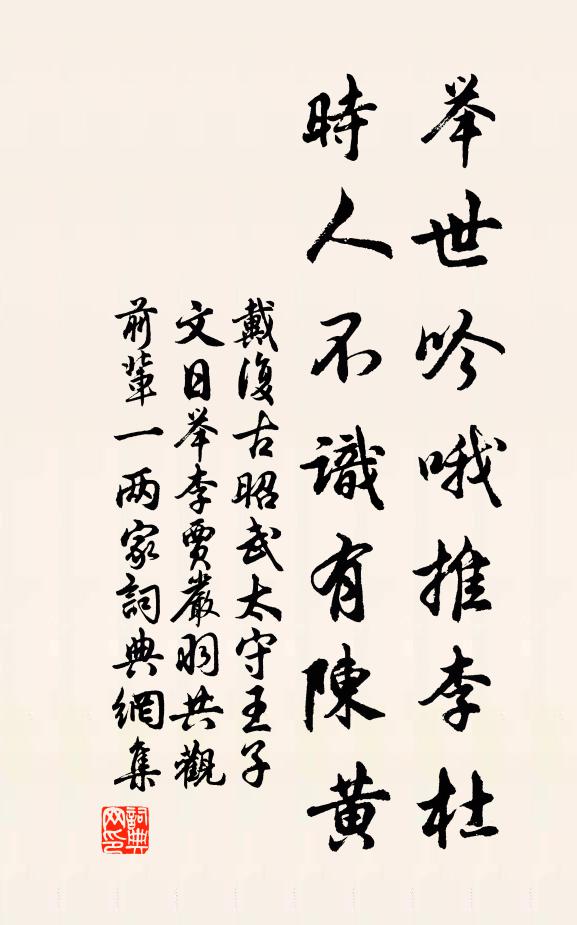 举世吟哦推李杜
時人不識有陳黄
戴復古昭武太守王子
文日举李賈嚴羽共觀
前輩一两家詞典網集
詞典
网印